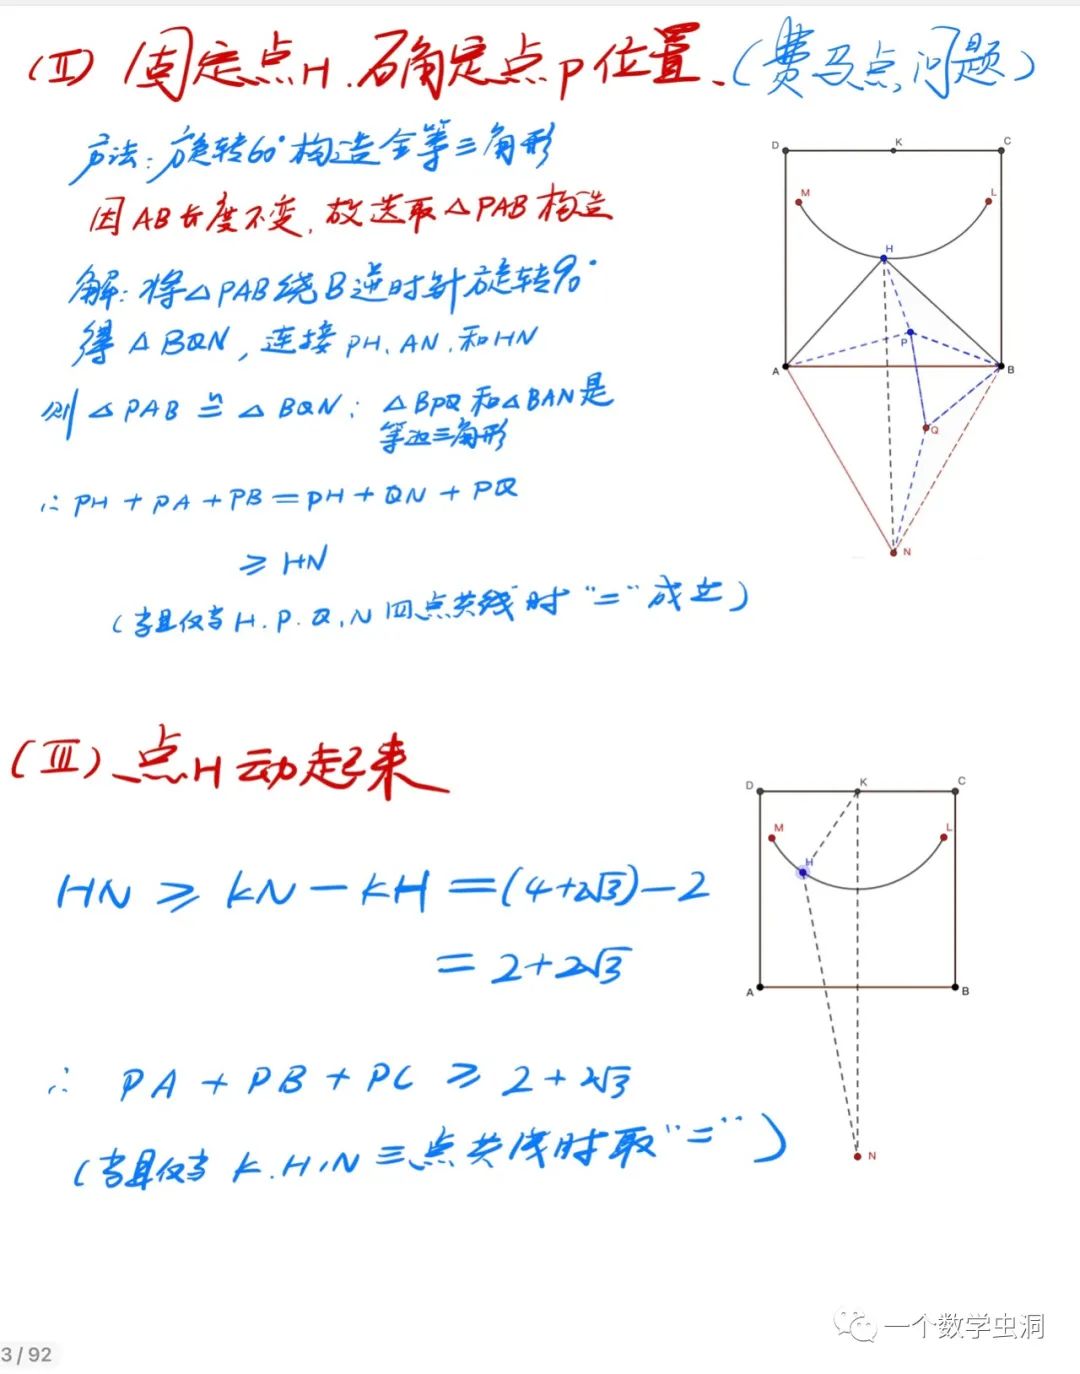 (II) 固定点H.确定点P位置、(费马点问题)
方法:旋转60°构造全等三角形
因AB长度不变,故选取△PAB构造
解:将△PAB绕B逆时针旋转90°
得△BQN,连接PH、AN、和HN
则△PAB≌△BQN; △BPQ和△BAN是
等边三角形
∴PH+PA+PB=PH+QN+PQ
≥HN
(当且仅当H.P.Q.N四点共线时"="成立)
D K C
M L
H
P
A B
Q
N
(III)、点H动起来
HN≥KN-KH=(4+2√3)-2
=2+2√3
∴ PA+PB+PC≥2+2√3
(当且仅当K.H.N三点共线时取"=")
D K C
M L
H
A B
N
一个数学虫洞
3/92